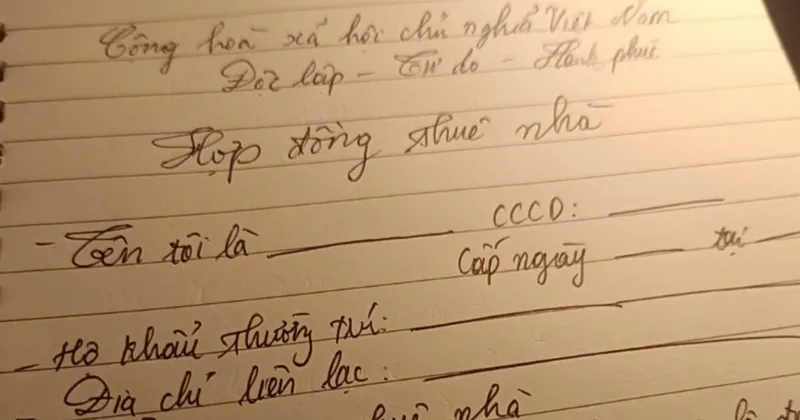 Cộng hoà xã hội chủ nghĩa Việt Nam
Độc lập - Tự do - Hạnh phúc
Hợp đồng thuê nhà
- Tên tôi là CCCD:
Cấp ngày tại
- Hộ khẩu thường trú:
Địa chỉ liên lạc:
thuê nhà